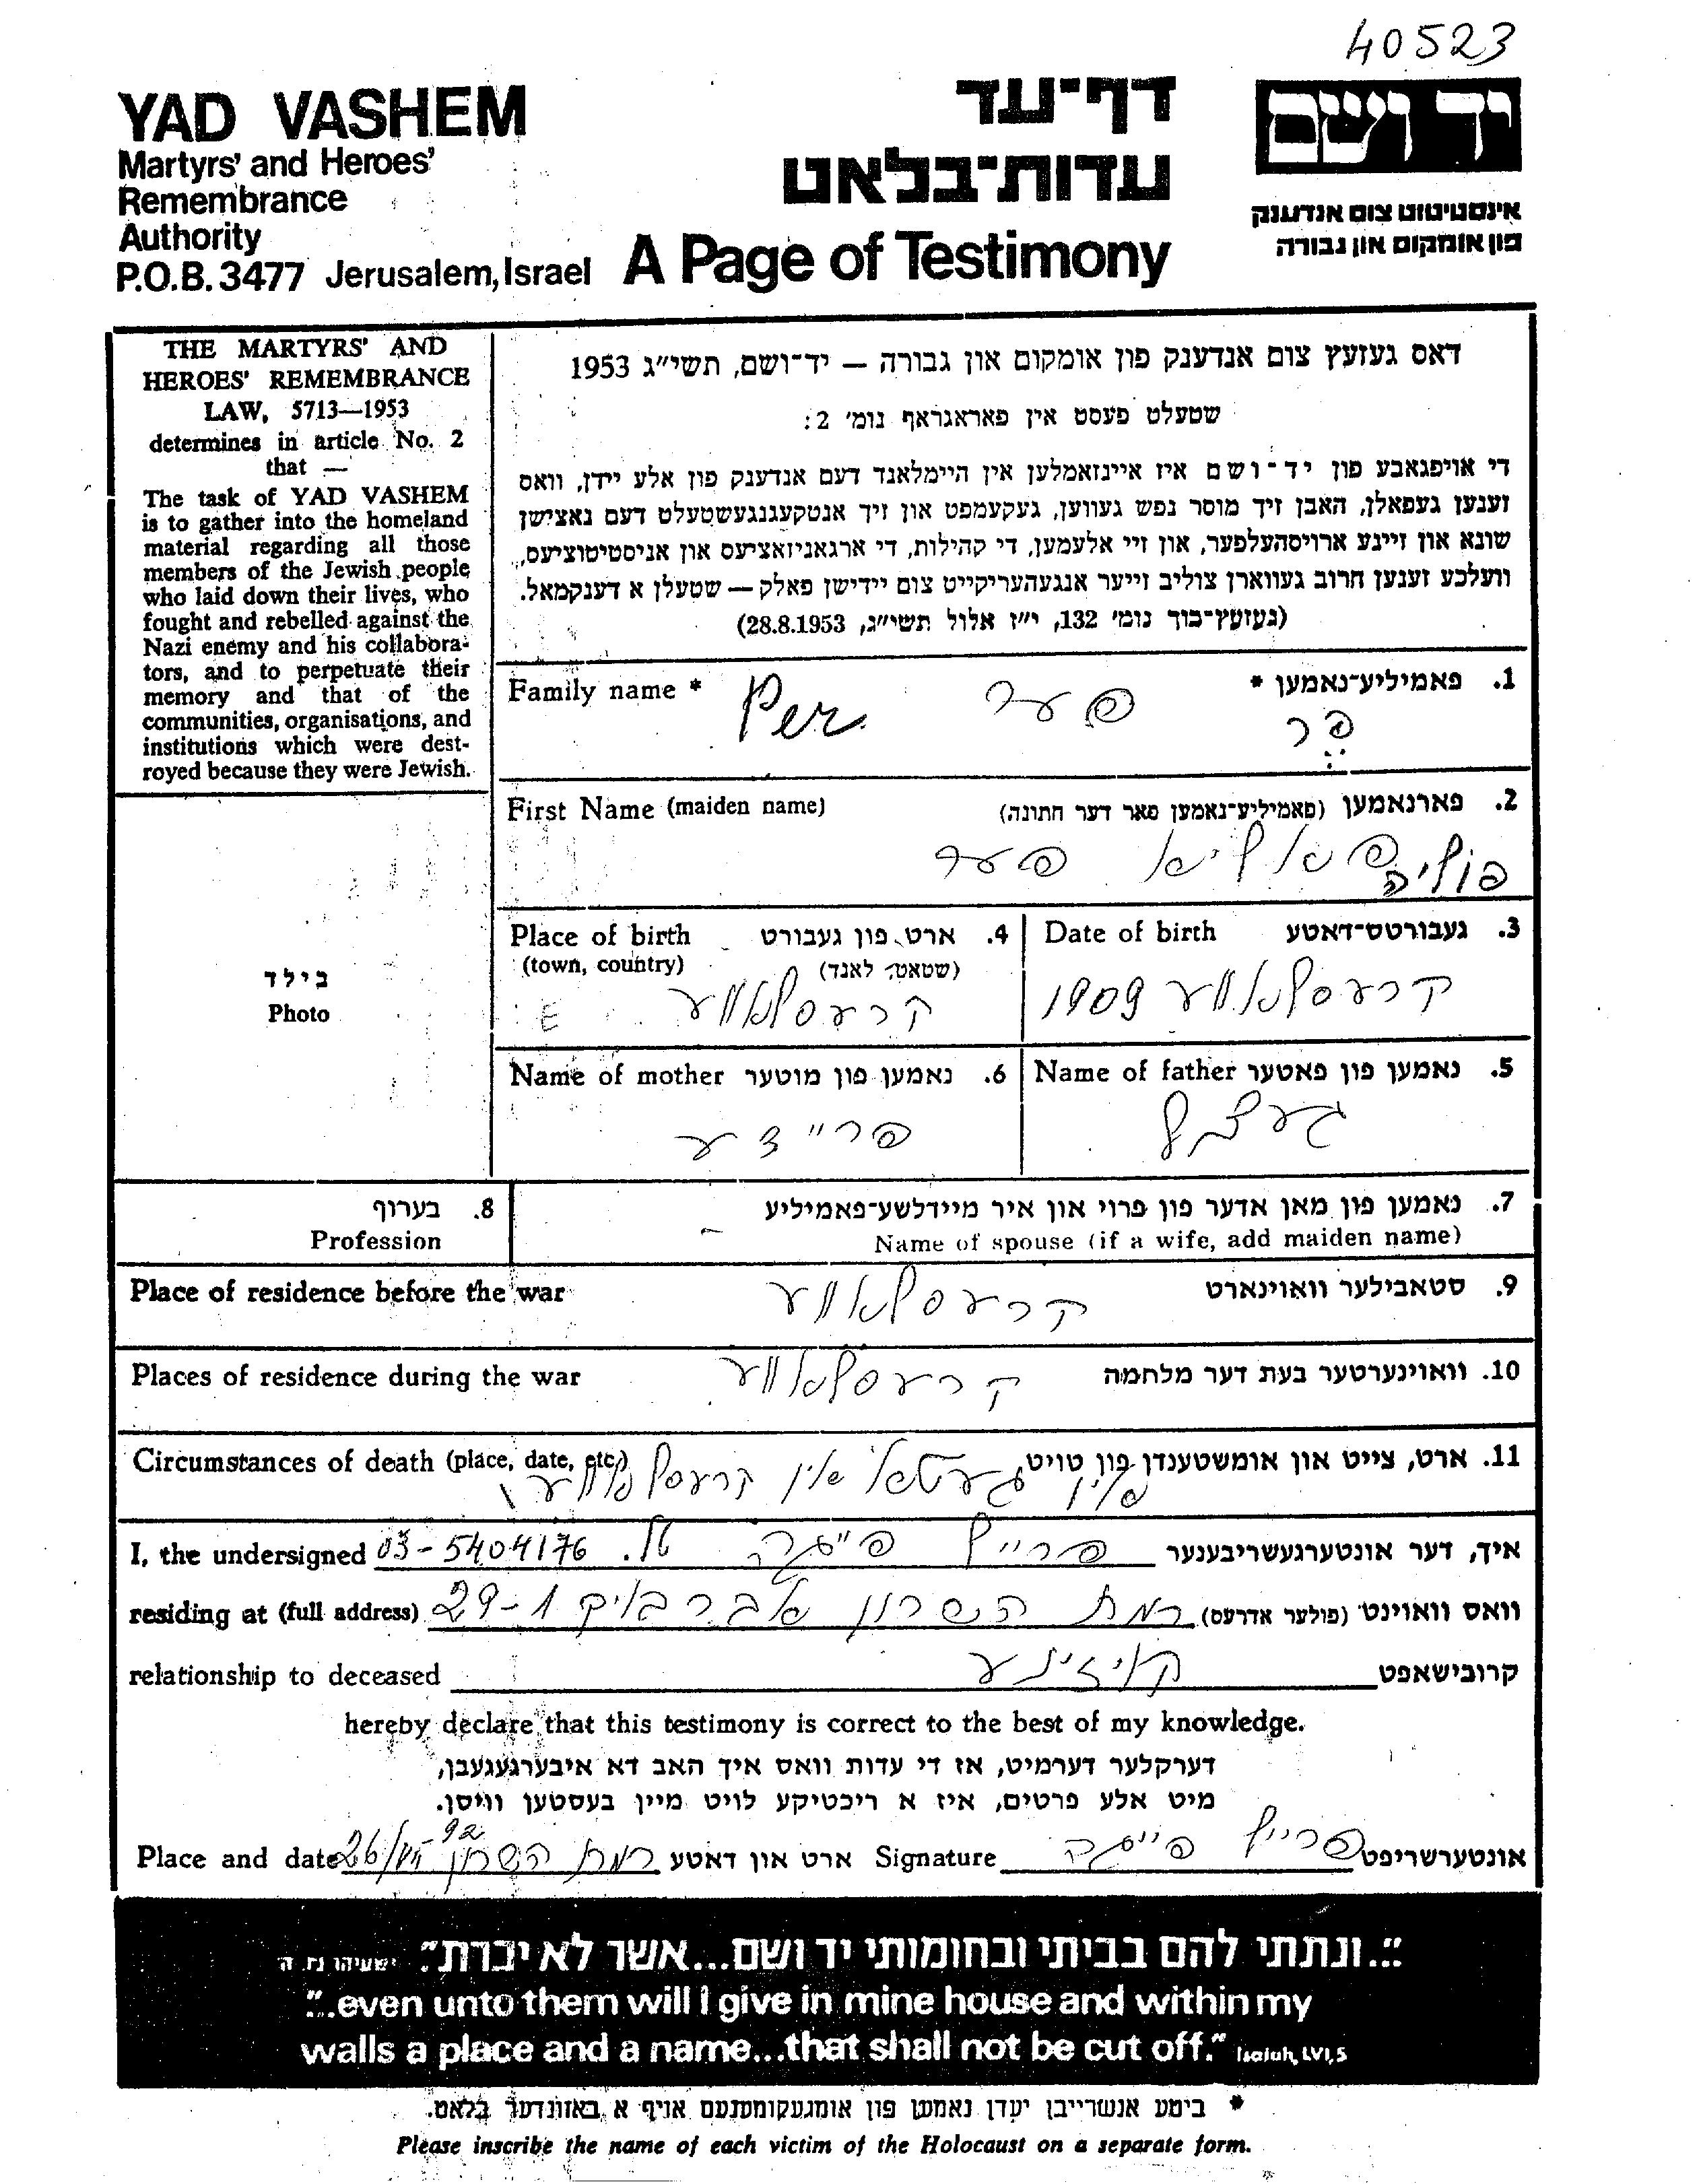 40523
YAD VASHEM
Martyrs' and Heroes'
Remembrance
Authority
P.O.B. 3477 Jerusalem, Israel
דף־עד
עדות־בלאט
A Page of Testimony
יד ושם
אינסטיטוט צום אנדענק
פון אומקום און גבורה
THE MARTYRS' AND
HEROES' REMEMBRANCE
LAW, 5713—1953
determines in article No. 2
that —
The task of YAD VASHEM
is to gather into the homeland
material regarding all those
members of the Jewish people
who laid down their lives, who
fought and rebelled against the
Nazi enemy and his collabora-
tors, and to perpetuate their
memory and that of the
communities, organisations, and
institutions which were dest-
royed because they were Jewish.
דאס געזעץ צום אנדענק פון אומקום און גבורה — יד־ושם, תשי״ג 1953
שטעלט פעסט אין פאראגראף נומ׳ 2:
די אויפגאבע פון יד־ושם איז איינזאמלען אין היימלאנד דעם אנדענק פון אלע יידן, וואס
זענען געפאלן, האבן זיך מוסר נפש געווען, געקעמפט און זיך אנטקעגנגעשטעלט דעם נאצישן
שונא און זיינע ארויסהעלפער, און זיי אלעמען, די קהילות, די ארגאניזאציעס און אניסטיטוציעס,
וועלכע זענען חרוב געווארן צוליב זייער אנגעהעריקייט צום יידישן פאלק — שטעלן א דענקמאל.
(געזעץ־בוך נומ׳ 132, י״ז אלול תשי״ג, 28.8.1953)
Family name * Per פער 1. פאמיליע־נאמען *
פר
First Name (maiden name) 2. פארנאמען (פאמיליע־נאמען פאר דער חתונה)
פאליא פער
פוליה
Place of birth 4. ארט פון געבורט
(town, country) (שטאט, לאנד)
קרעסלאווע
Date of birth 3. געבורטס־דאטע
קרעסלאווע 1909
בילד
Photo
Name of mother 6. נאמען פון מוטער
פריידע
Name of father 5. נאמען פון פאטער
געצל
8. בערוף
Profession
7. נאמען פון מאן אדער פון פרוי און איר מיידלשע־פאמיליע
Name of spouse (if a wife, add maiden name)
Place of residence before the war קרעסלאווע 9. סטאבילער וואוינארט
Places of residence during the war קרעסלאווע 10. וואוינערטער בעת דער מלחמה
Circumstances of death (place, date, etc.) 11. ארט, צייט און אומשטענדן פון טויט
אין געטאָ אין קרעסלאווע
I, the undersigned 03-5404176 .טל פרייל פייגה איך, דער אונטערגעשריבענער
residing at (full address) רמת השרון 29-1 וואס וואוינט (פולער אדרעס)
relationship to deceased קוזינע קרובישאפט
hereby declare that this testimony is correct to the best of my knowledge.
דערקלער דערמיט, אז די עדות וואס איך האב דא איבערגעגעבן,
מיט אלע פרטים, איז א ריכטיקע לויט מיין בעסטען וויסן.
Place and date 26/VII-92 רמת השרון ארט און דאטע Signature פרייל פייגה אונטערשריפט
"...ונתתי להם בביתי ובחומותי יד ושם...אשר לא יכרת" ישעיהו נו, ה
"...even unto them will I give in mine house and within my
walls a place and a name...that shall not be cut off." Isaiah, LVI, 5
* ביטע אנשרייבן יעדן נאמען פון אומגעקומענעם אויף א באזונדער בלאט.
Please inscribe the name of each victim of the Holocaust on a separate form.